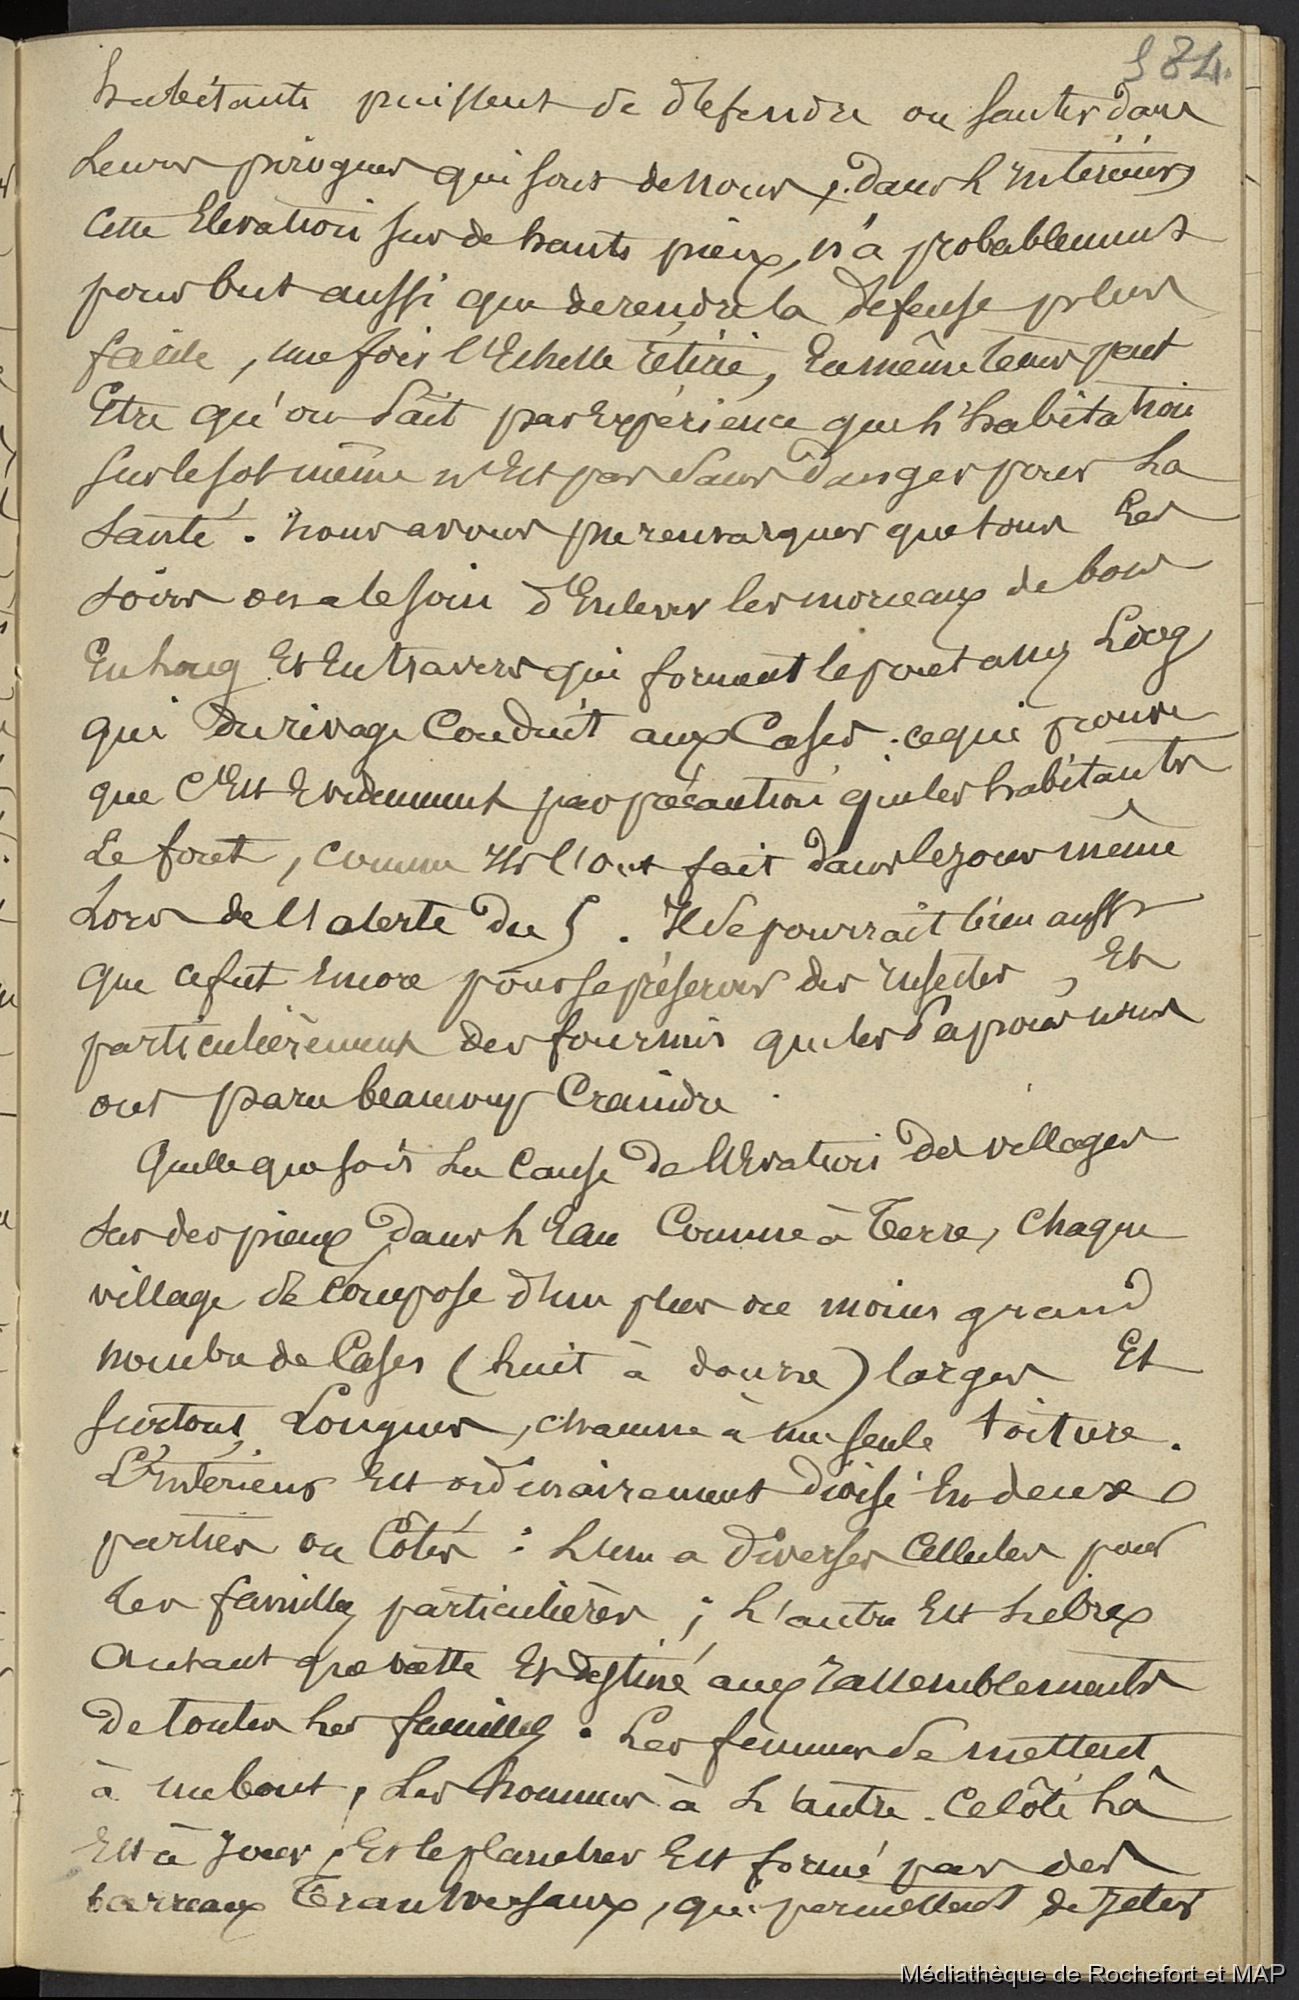 384.
habitants puissent se défendre ou sauter dans
Leurs pirogues qui sont dessous ; Dans l'Intérieur,
cette Elévation sur de hauts pieux, n'a probablement
pour but aussi que de rendre la défense plus
facile, une fois l'Echelle retirée, En même tems peut
Etre qu'on Sait par Expérience que l'habitation
sur le sol même n'Est pas Sans Danger pour La
Santé. Nous avons pu remarquer que tous Les
soirs on a le soin d'Enlever les morceaux de bois
En Long Et En travers qui forment le pont assez Long
qui Du rivage Conduit aux Cases. ce qui prouve
que C'Est Evidemment par précaution que les habitants
Le font, comme Ils l'Ont fait dans le jour même
Lors de l'alerte Du 5. Il Se pourrait bien aussi
que ce fut Encore pour se préserver des Insectes, Et
particulièrement des fourmis que les Papous nous
ont paru beaucoup Craindre.
Quelle que soit La Cause De l'Elévation Des villages
sur des pieux Dans L'Eau Comme à Terre, Chaque
village Se Compose d'un plus ou moins grand
nombre de Cases (huit à douze) larges Et
surtout Longues, chacune à une seule toiture.
L'Intérieur Est ordinairement Divisé En deux
parties ou Côtés : L'un a Diverses Cellules pour
Les familles particulières ; L'autre Est Libre
Et destiné aux rassemblements
De toutes Les familles. Les femmes Se mettent
à un bout, Les hommes à L'autre. Ce Côté Là
Est à Jour, Et le plancher Est formé par des
barreaux Transversaux, qui permettent de Jeter
Médiathèque de Rochefort et MAP